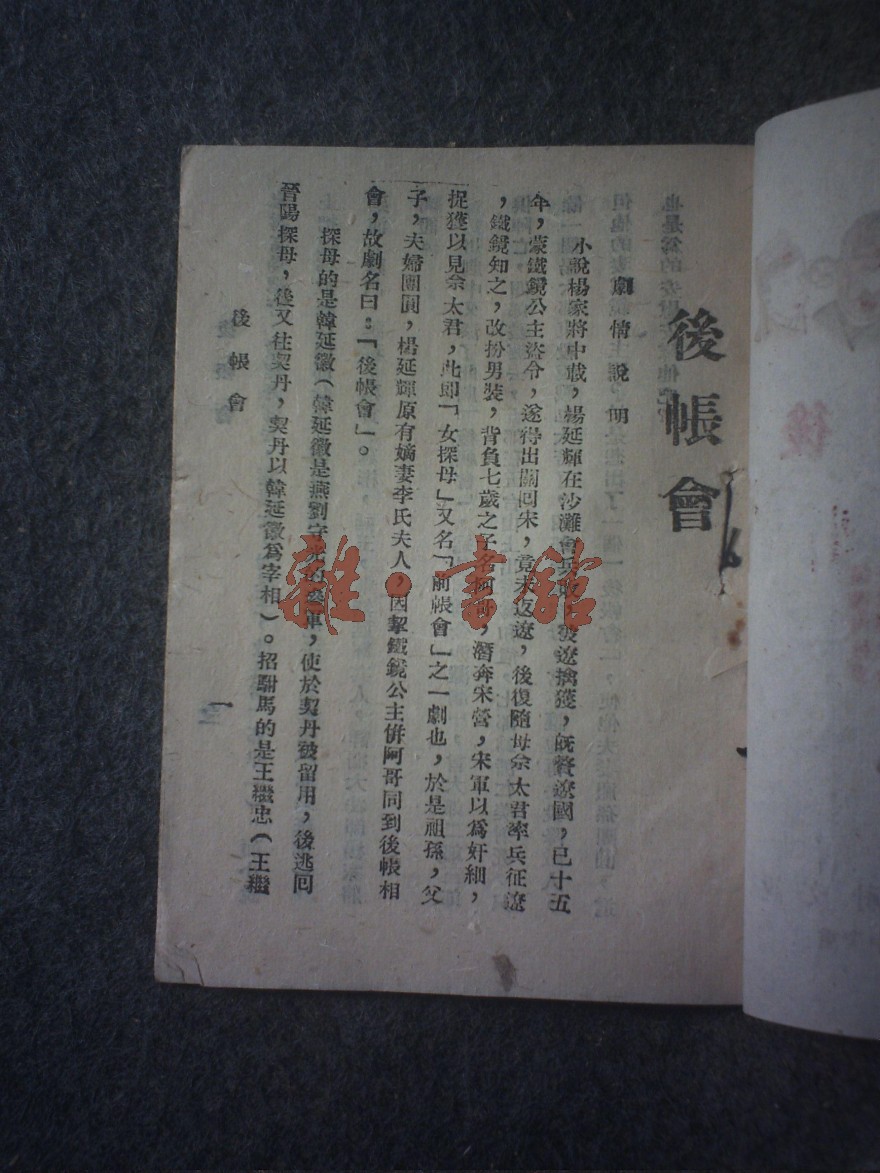 後帳會
劇情說明
小說楊家將中載，楊延輝在沙灘會兵敗，發遼擒獲，旣贅遼國，已十五
年，蒙鐵鏡公主盜令，遂得出關回宋，竟未返遼，後復隨母佘太君率兵征遼
，鐵鏡知之，改扮男裝，背負七歲之子名阿哥，潛奔宋營，宋軍以爲奸細，
捉獲以見佘太君，此卽「女探母」又名「前帳會」之一劇也，於是祖孫，父
子，夫婦團圓，楊延輝原有嫡妻李氏夫人，因挈鐵鏡公主倂阿哥同到後帳相
會，故劇名曰：「後帳會」。
探母的是韓延徽（韓延徽是燕劉守光的參軍，使於契丹發留用，後逃回
晉陽探母，後又往契丹，契丹以韓延徽爲宰相）。招駙馬的是王繼忠（王繼
後帳會
一
雜·書館